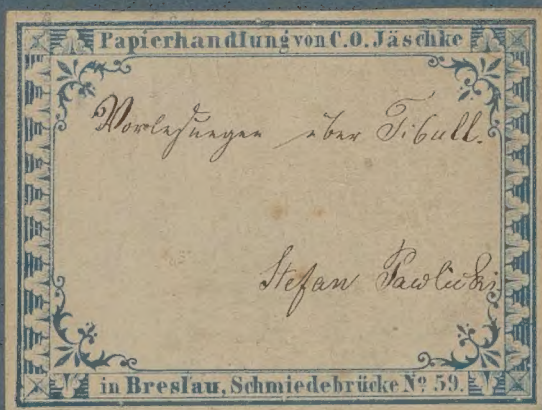 Papierhandlung von C.O. Jäschke
Vorlesungen über Tibull.
Stefan Pawlicki
in Breslau, Schmiedebrücke No 59.